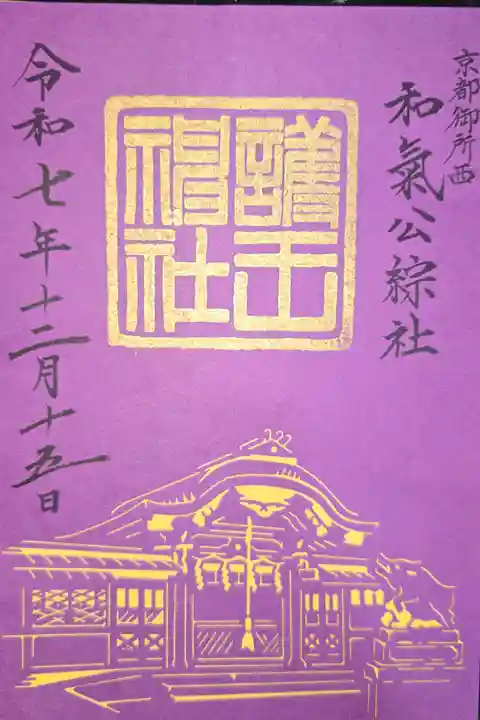 京都御所西
和氣公綜社
護王
神社
令和七年十二月十五日